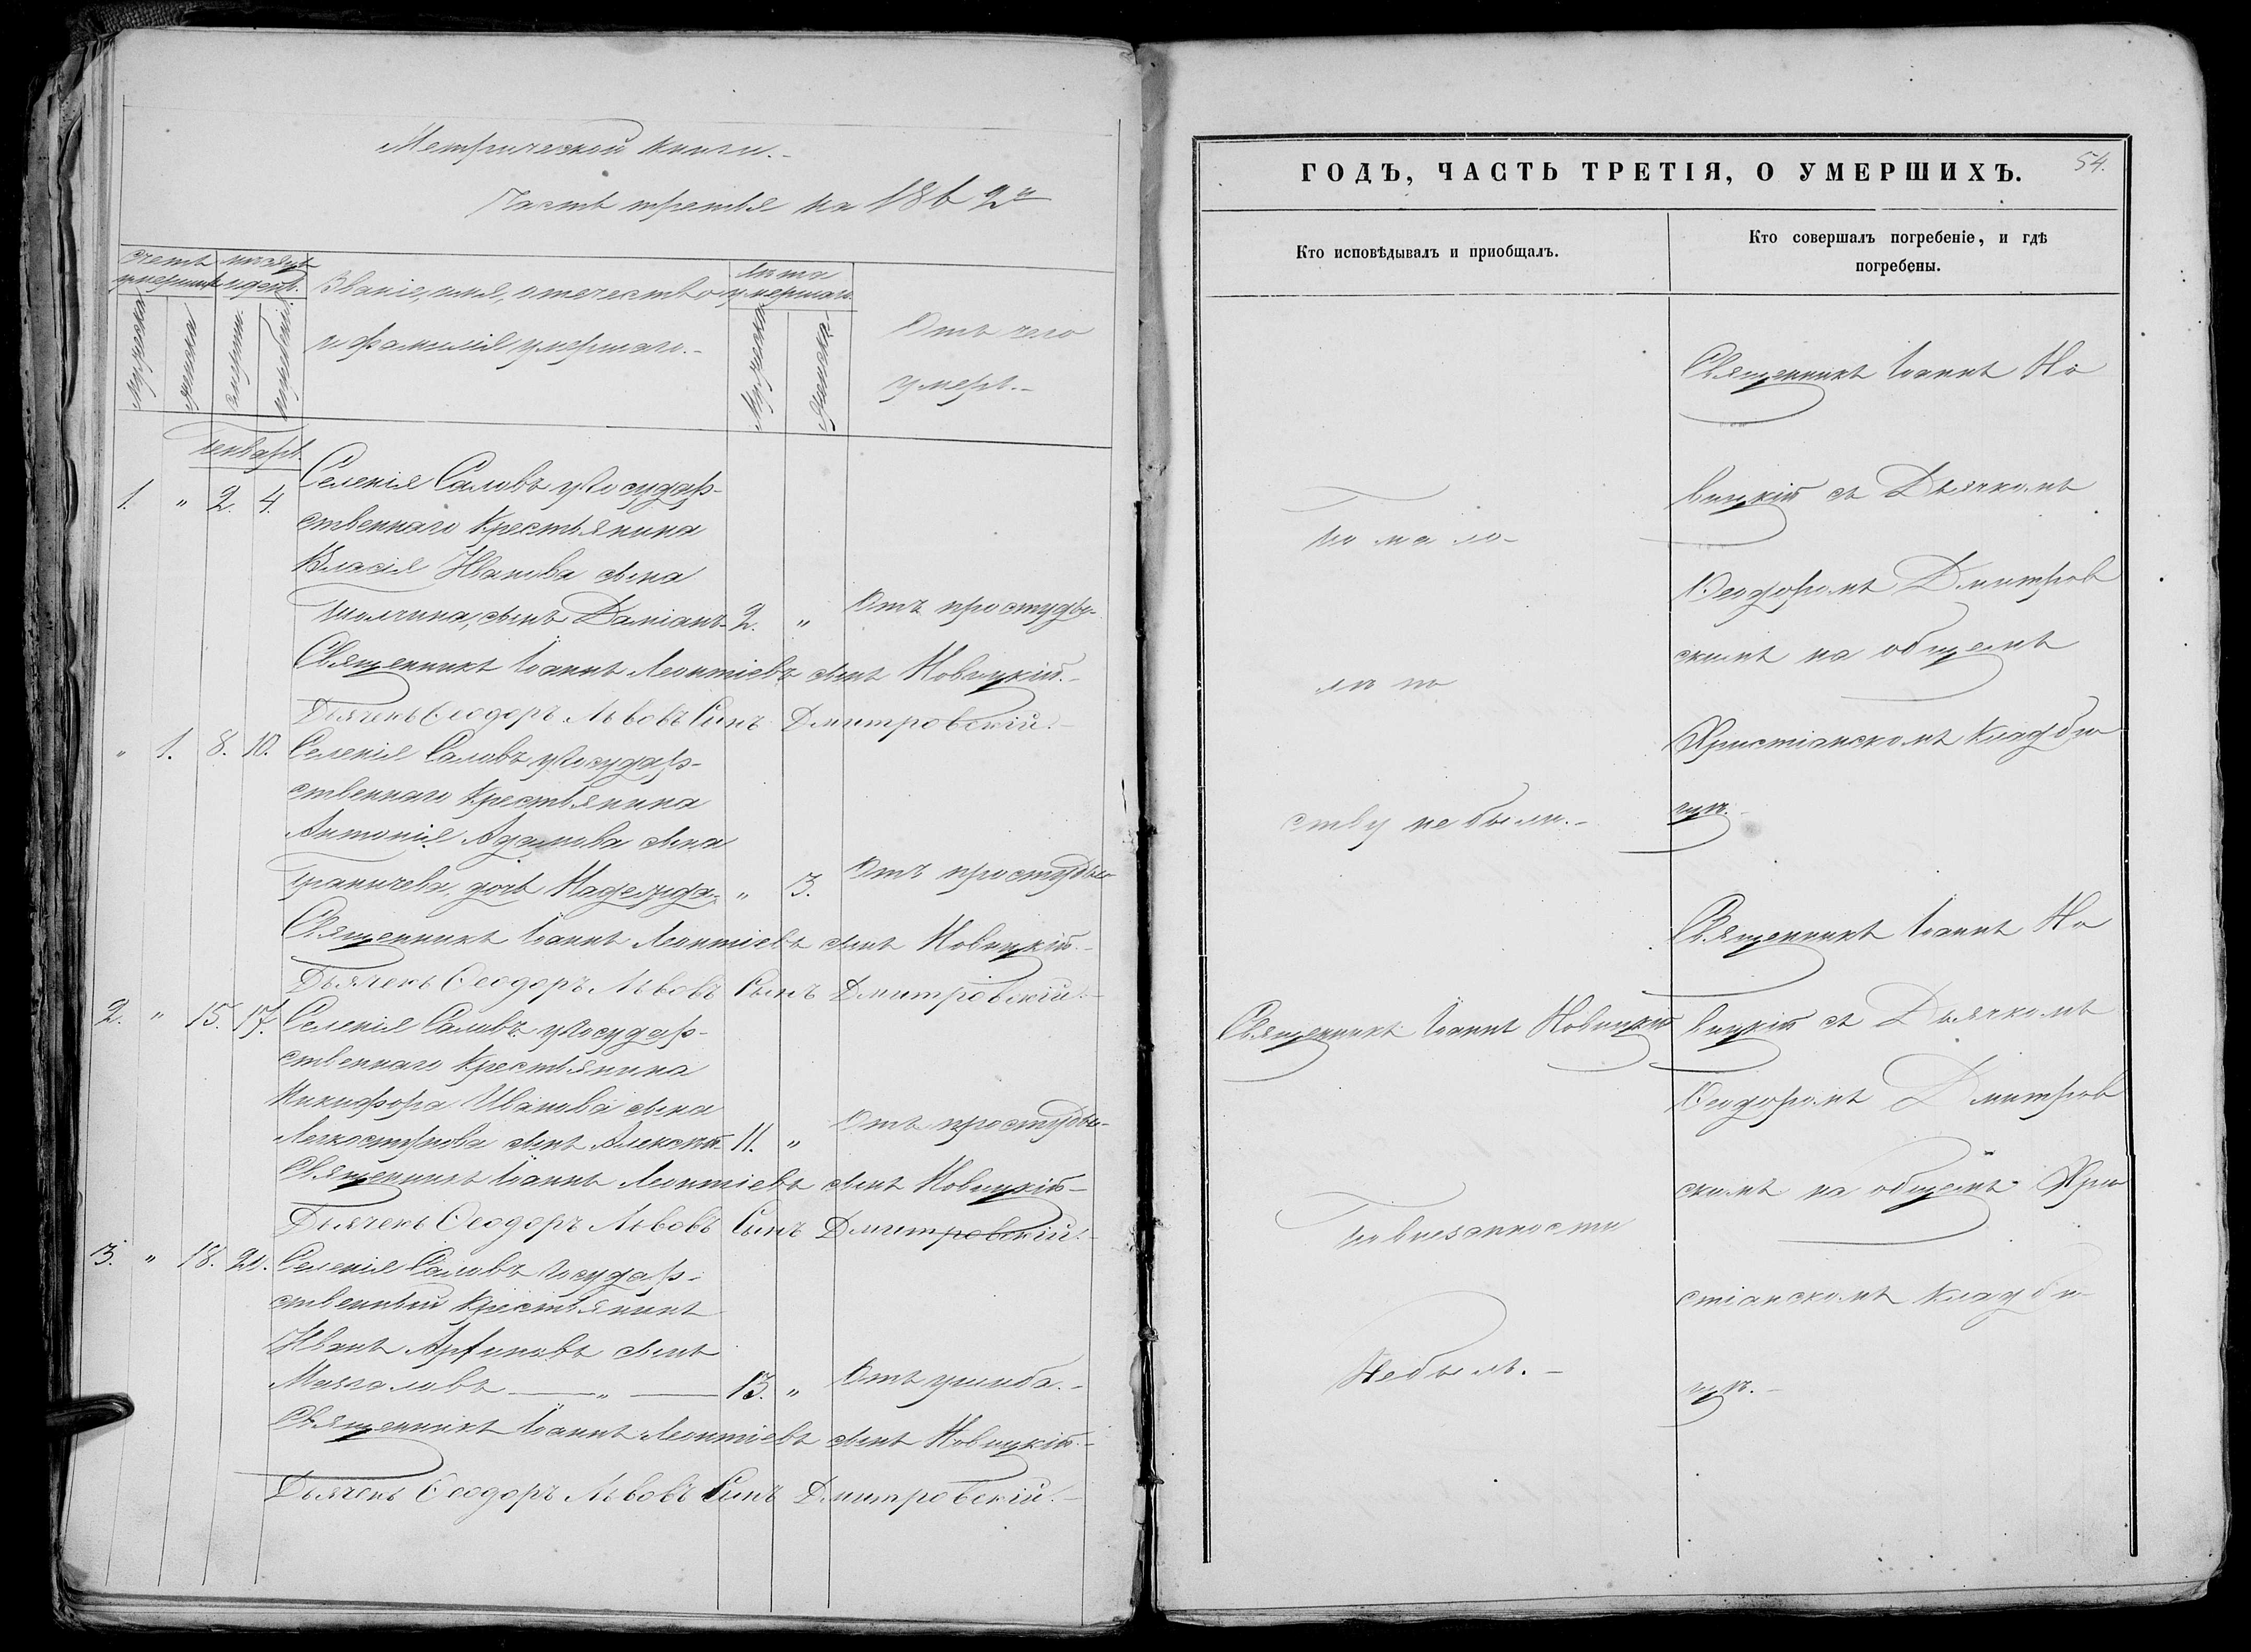 Метрической книги.-
Часть третья на 1862й
Счетъ умершихъ
месяцъ и день.
Званіе, имя, отечество
и фамилія умершаго.-
Лѣта умершаго.
Отъ чего
умеръ.-
Мужеска
женска
смерти.
погребенія
Мужеска
Женска
Генварь.
1. " 2. 4. Селенія Саловъ у Государ-
ственнаго Крестьянина
Власія Иванова сына
сынъ Даміанъ 2. " Отъ простуды.
Священникъ Іоаннъ Леонтіевъ сынъ Новицкій.-
Дьячекъ Ѳеодоръ Львовъ Сынъ Дмитровскій.-
" 1. 8. 10. Селенія Саловъ у Государ-
ственнаго Крестьянина
Антонія Адамова сына
Граничева дочь Надежда. " 3. Отъ простуды
Священникъ Іоаннъ Леонтіевъ сынъ Новицкій.-
Дьячекъ Ѳеодоръ Львовъ Сынъ Дмитровскій.-
2. " 15. 17. Селенія Саловъ у Государ-
ственнаго Крестьянина
Никифора Иванова сына
Легкоступова сынъ Алексѣй 11. " Отъ простуды-
Священникъ Іоаннъ Леонтіевъ сынъ Новицкій-
Дьячекъ Ѳеодоръ Львовъ Сынъ Дмитровскій.-
3. " 18. 20. Селенія Саловъ Государ-
ственный Крестьянинъ
Иванъ сынъ
13. " Отъ ушиба.-
Священникъ Іоаннъ Леонтіевъ сынъ Новицкій.-
Дьячекъ Ѳеодоръ Львовъ Сынъ Дмитровскій.-
54.
ГОДЪ, ЧАСТЬ ТРЕТІЯ, О УМЕРШИХЪ.
Кто исповѣдывалъ и приобщалъ.
Кто совершалъ погребеніе, и гдѣ
погребены.
По мало-
лѣт
ству не были.-
Священникъ Іоаннъ Новицкій
По внезапности
Не былъ.-
Священникъ Іоаннъ Но
вицкій съ Дьячкомъ
Ѳеодоромъ Дмитров
скимъ на общемъ
Христіанскомъ кладби
щѣ.-
Священникъ Іоаннъ Но
вицкій съ Дьячкомъ
Ѳеодоромъ Дмитров
скимъ на общемъ Хри
стіанскомъ кладби-
щѣ.-